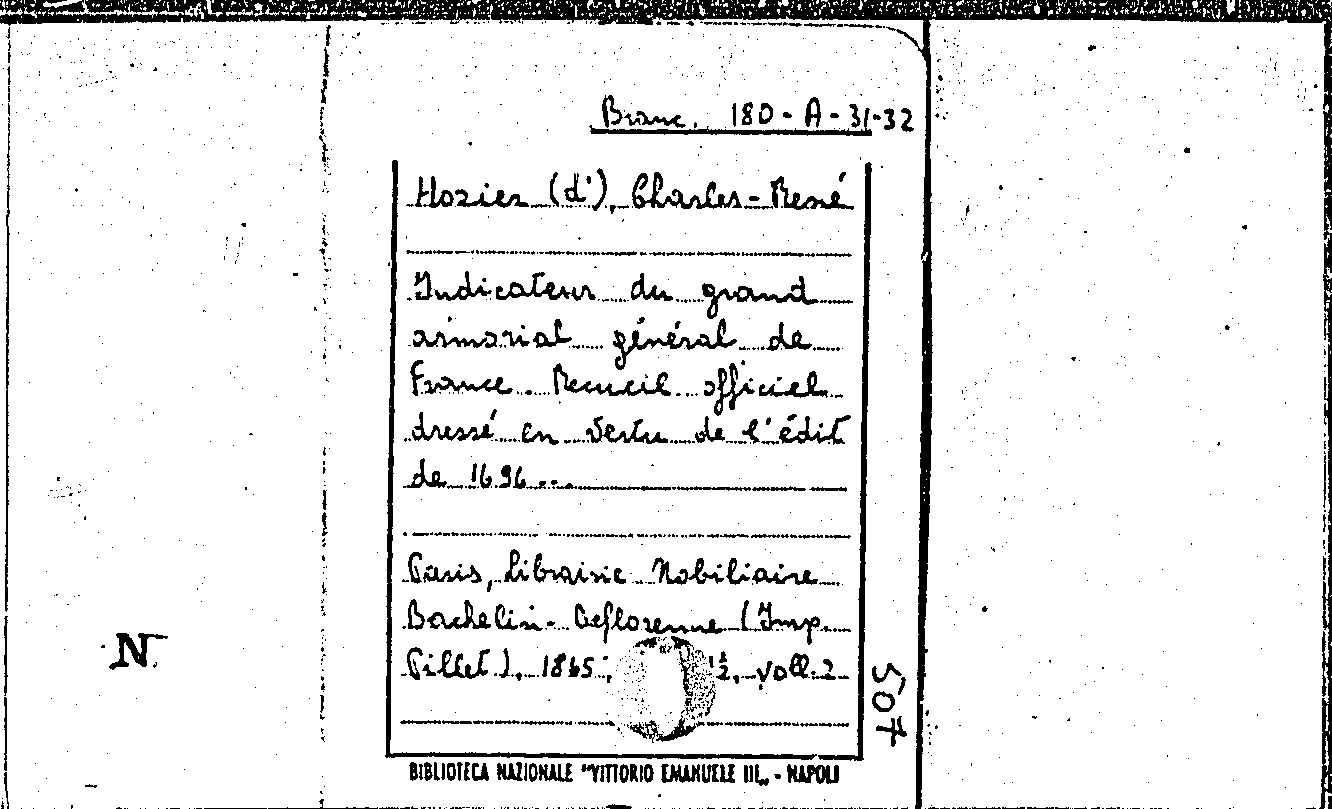 Branc. 180 - A - 31-32
Hozier (d'), Charles-René
Indicateur du grand
armorial général de
France. Recueil officiel
dressé en vertu de l'édit
de 1696...
Paris, Librairie Nobiliaire
Bachelin-Deflorenne (Imp.
Pillet), 1865; ½, voll. 2
507
N
BIBLIOTECA NAZIONALE "VITTORIO EMANUELE III„ - NAPOLI